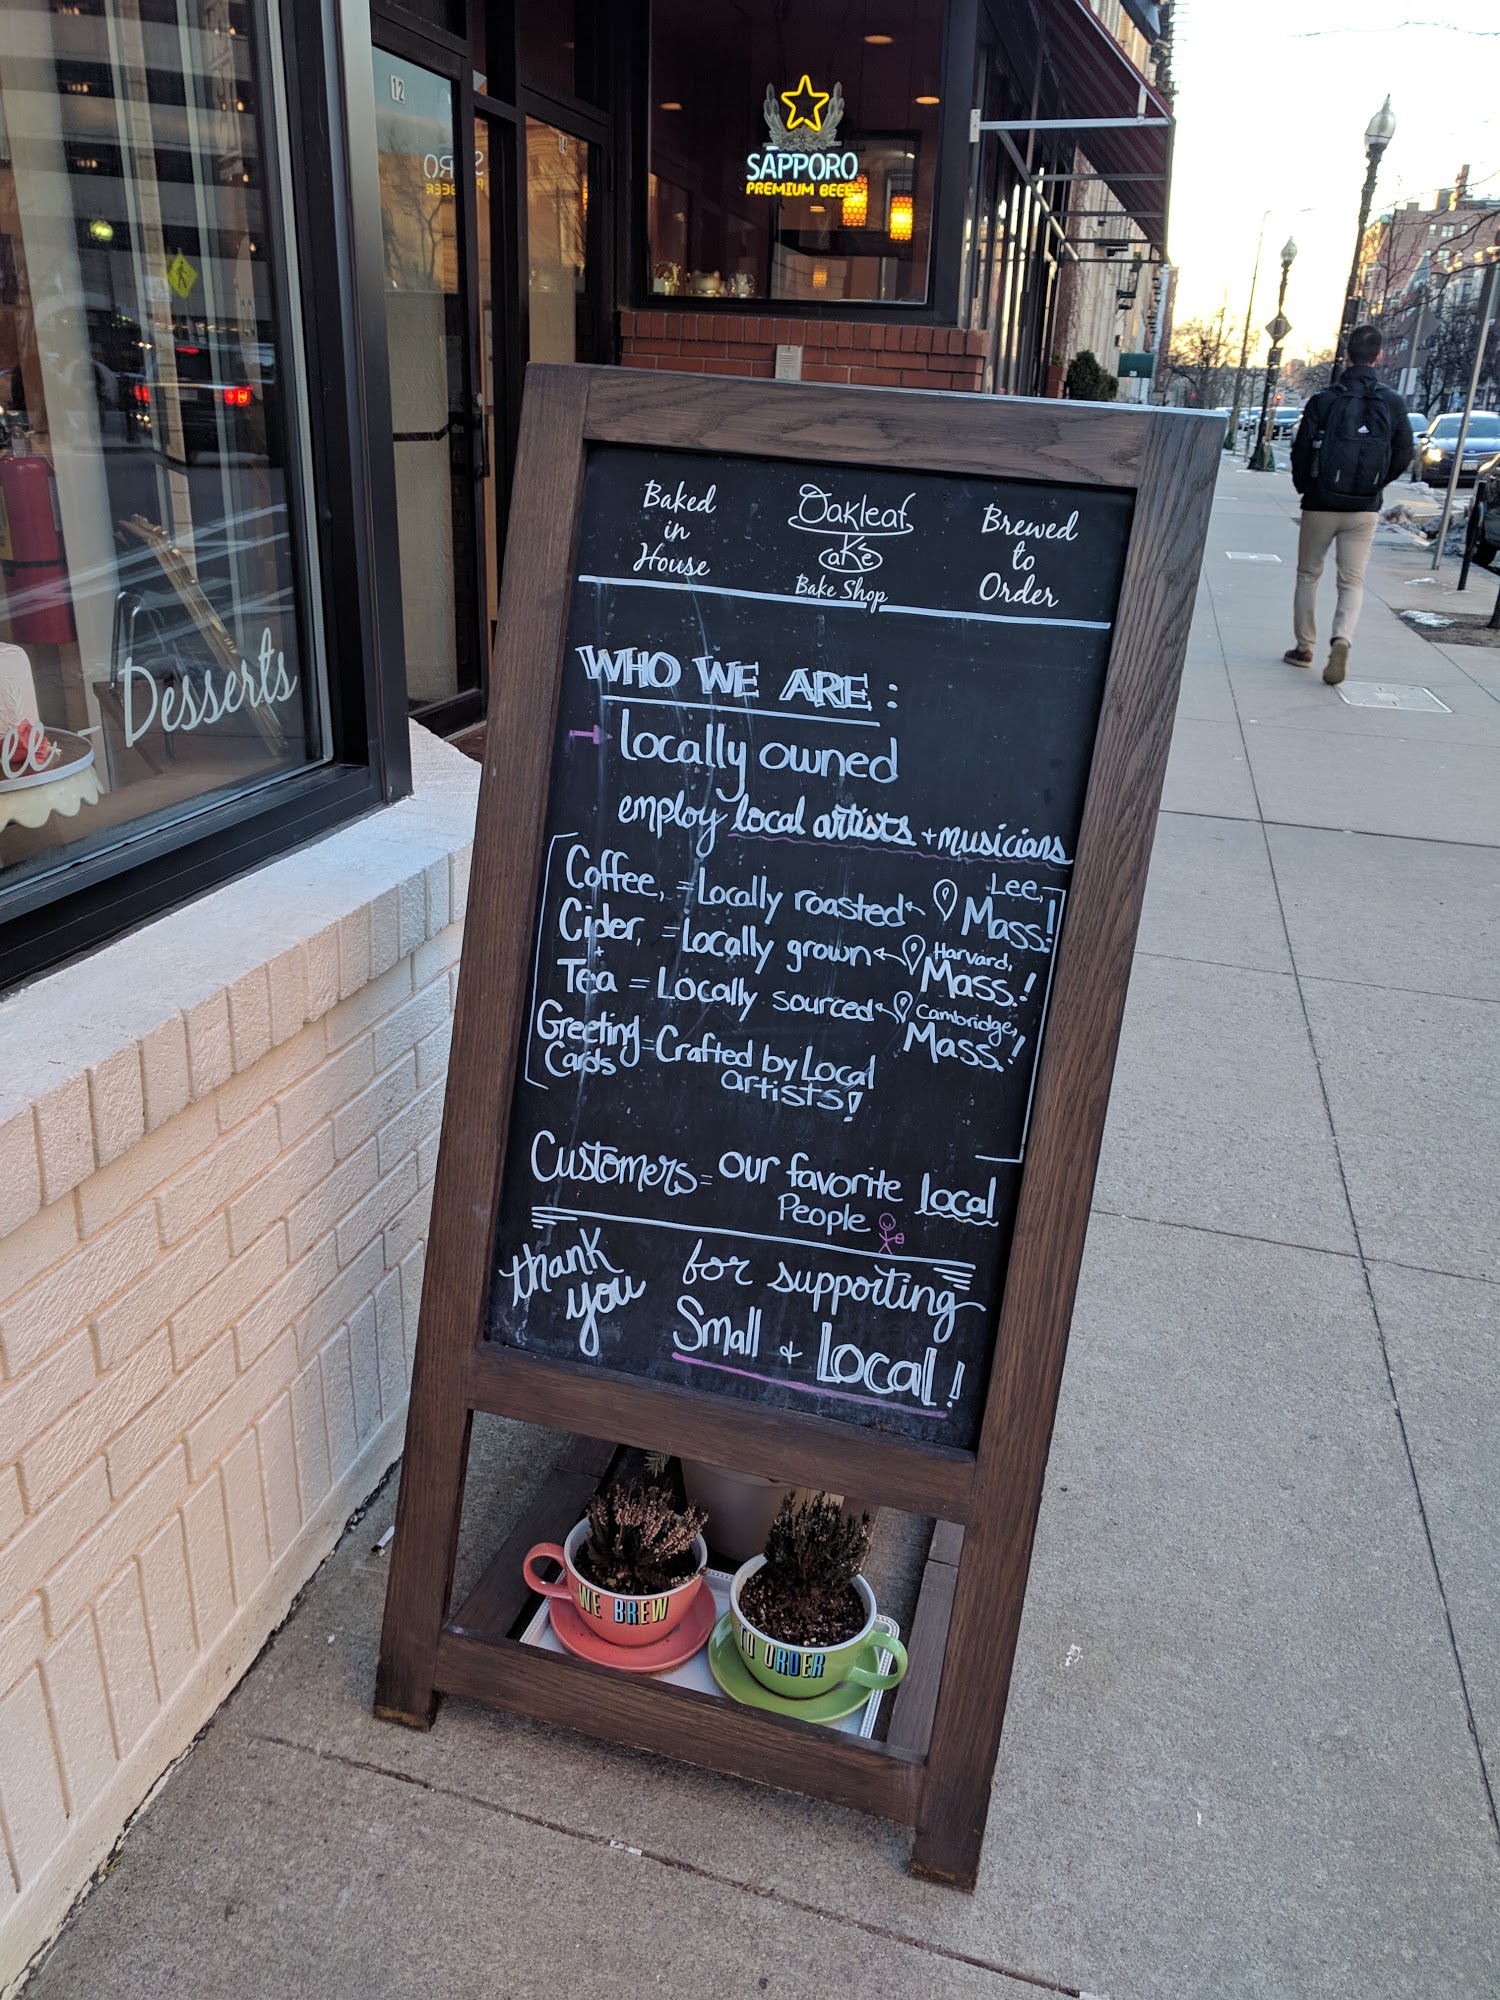 12
14
SAPPORO
PREMIUM BEER
Baked
in
House
Oakleaf
Cakes
Bake Shop
Brewed
to
Order
WHO WE ARE:
locally owned
employ local artists + musicians
Coffee, = Locally roasted Lee, Mass!
Cider, = Locally grown Harvard, Mass.!
+
Tea = Locally sourced Cambridge, Mass.!
Greeting Cards = Crafted by Local
artists!
Customers = our favorite local
People
thank
you
for supporting
Small + Local!
WE BREW
TO ORDER
Desserts